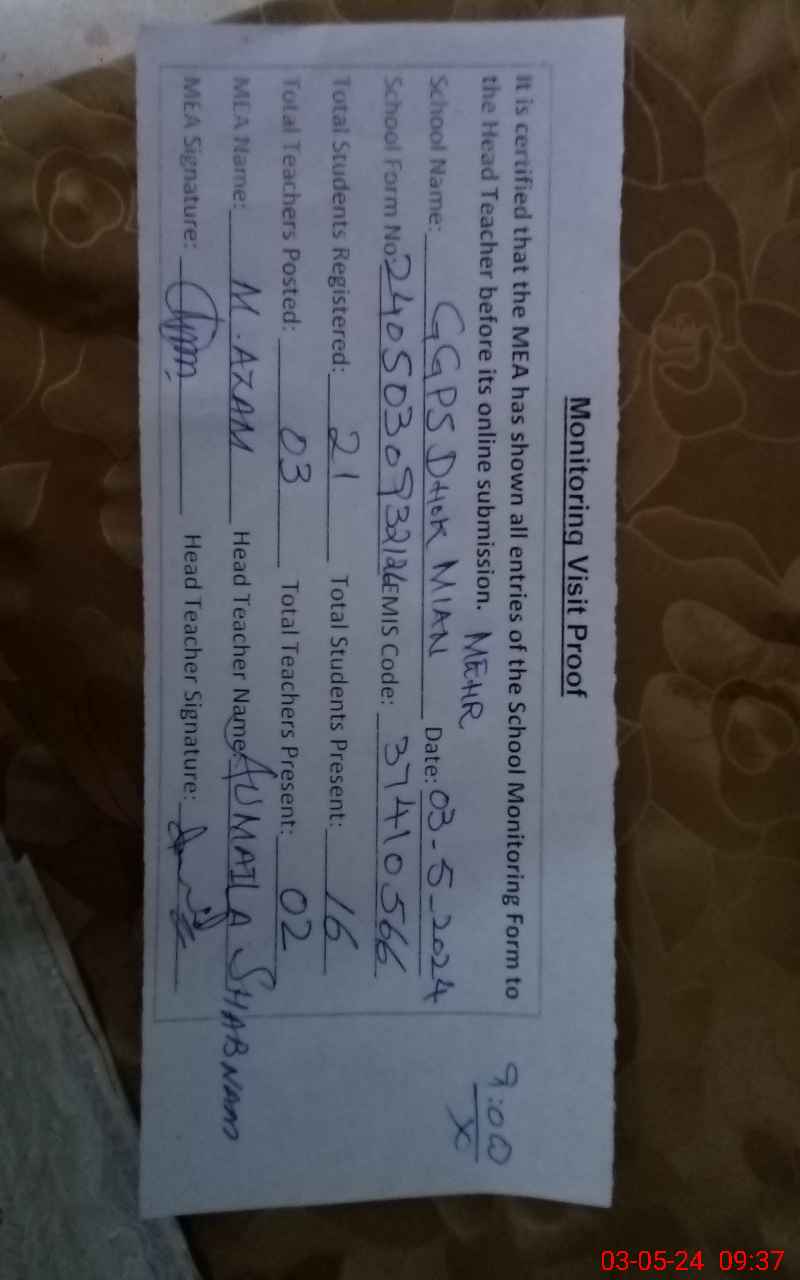 Monitoring Visit Proof
It is certified that the MEA has shown all entries of the School Monitoring Form to
the Head Teacher before its online submission.
9:00
School Name: GGPS DHOK MIAN MEHR Date: 03-5-2024
School Form No: 2405030932126 EMIS Code: 37410566
Total Students Registered: 21 Total Students Present: 16
Total Teachers Posted: 03 Total Teachers Present: 02
MEA Name: M. AZAM Head Teacher Name: HUMAILA SHABNAM
MEA Signature: Head Teacher Signature:
03-05-24 09:37